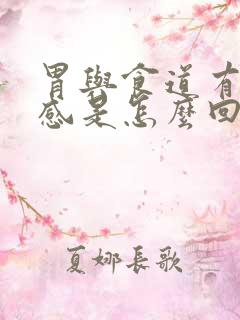 胃與食道有
感是怎麼回
夏娜長歌